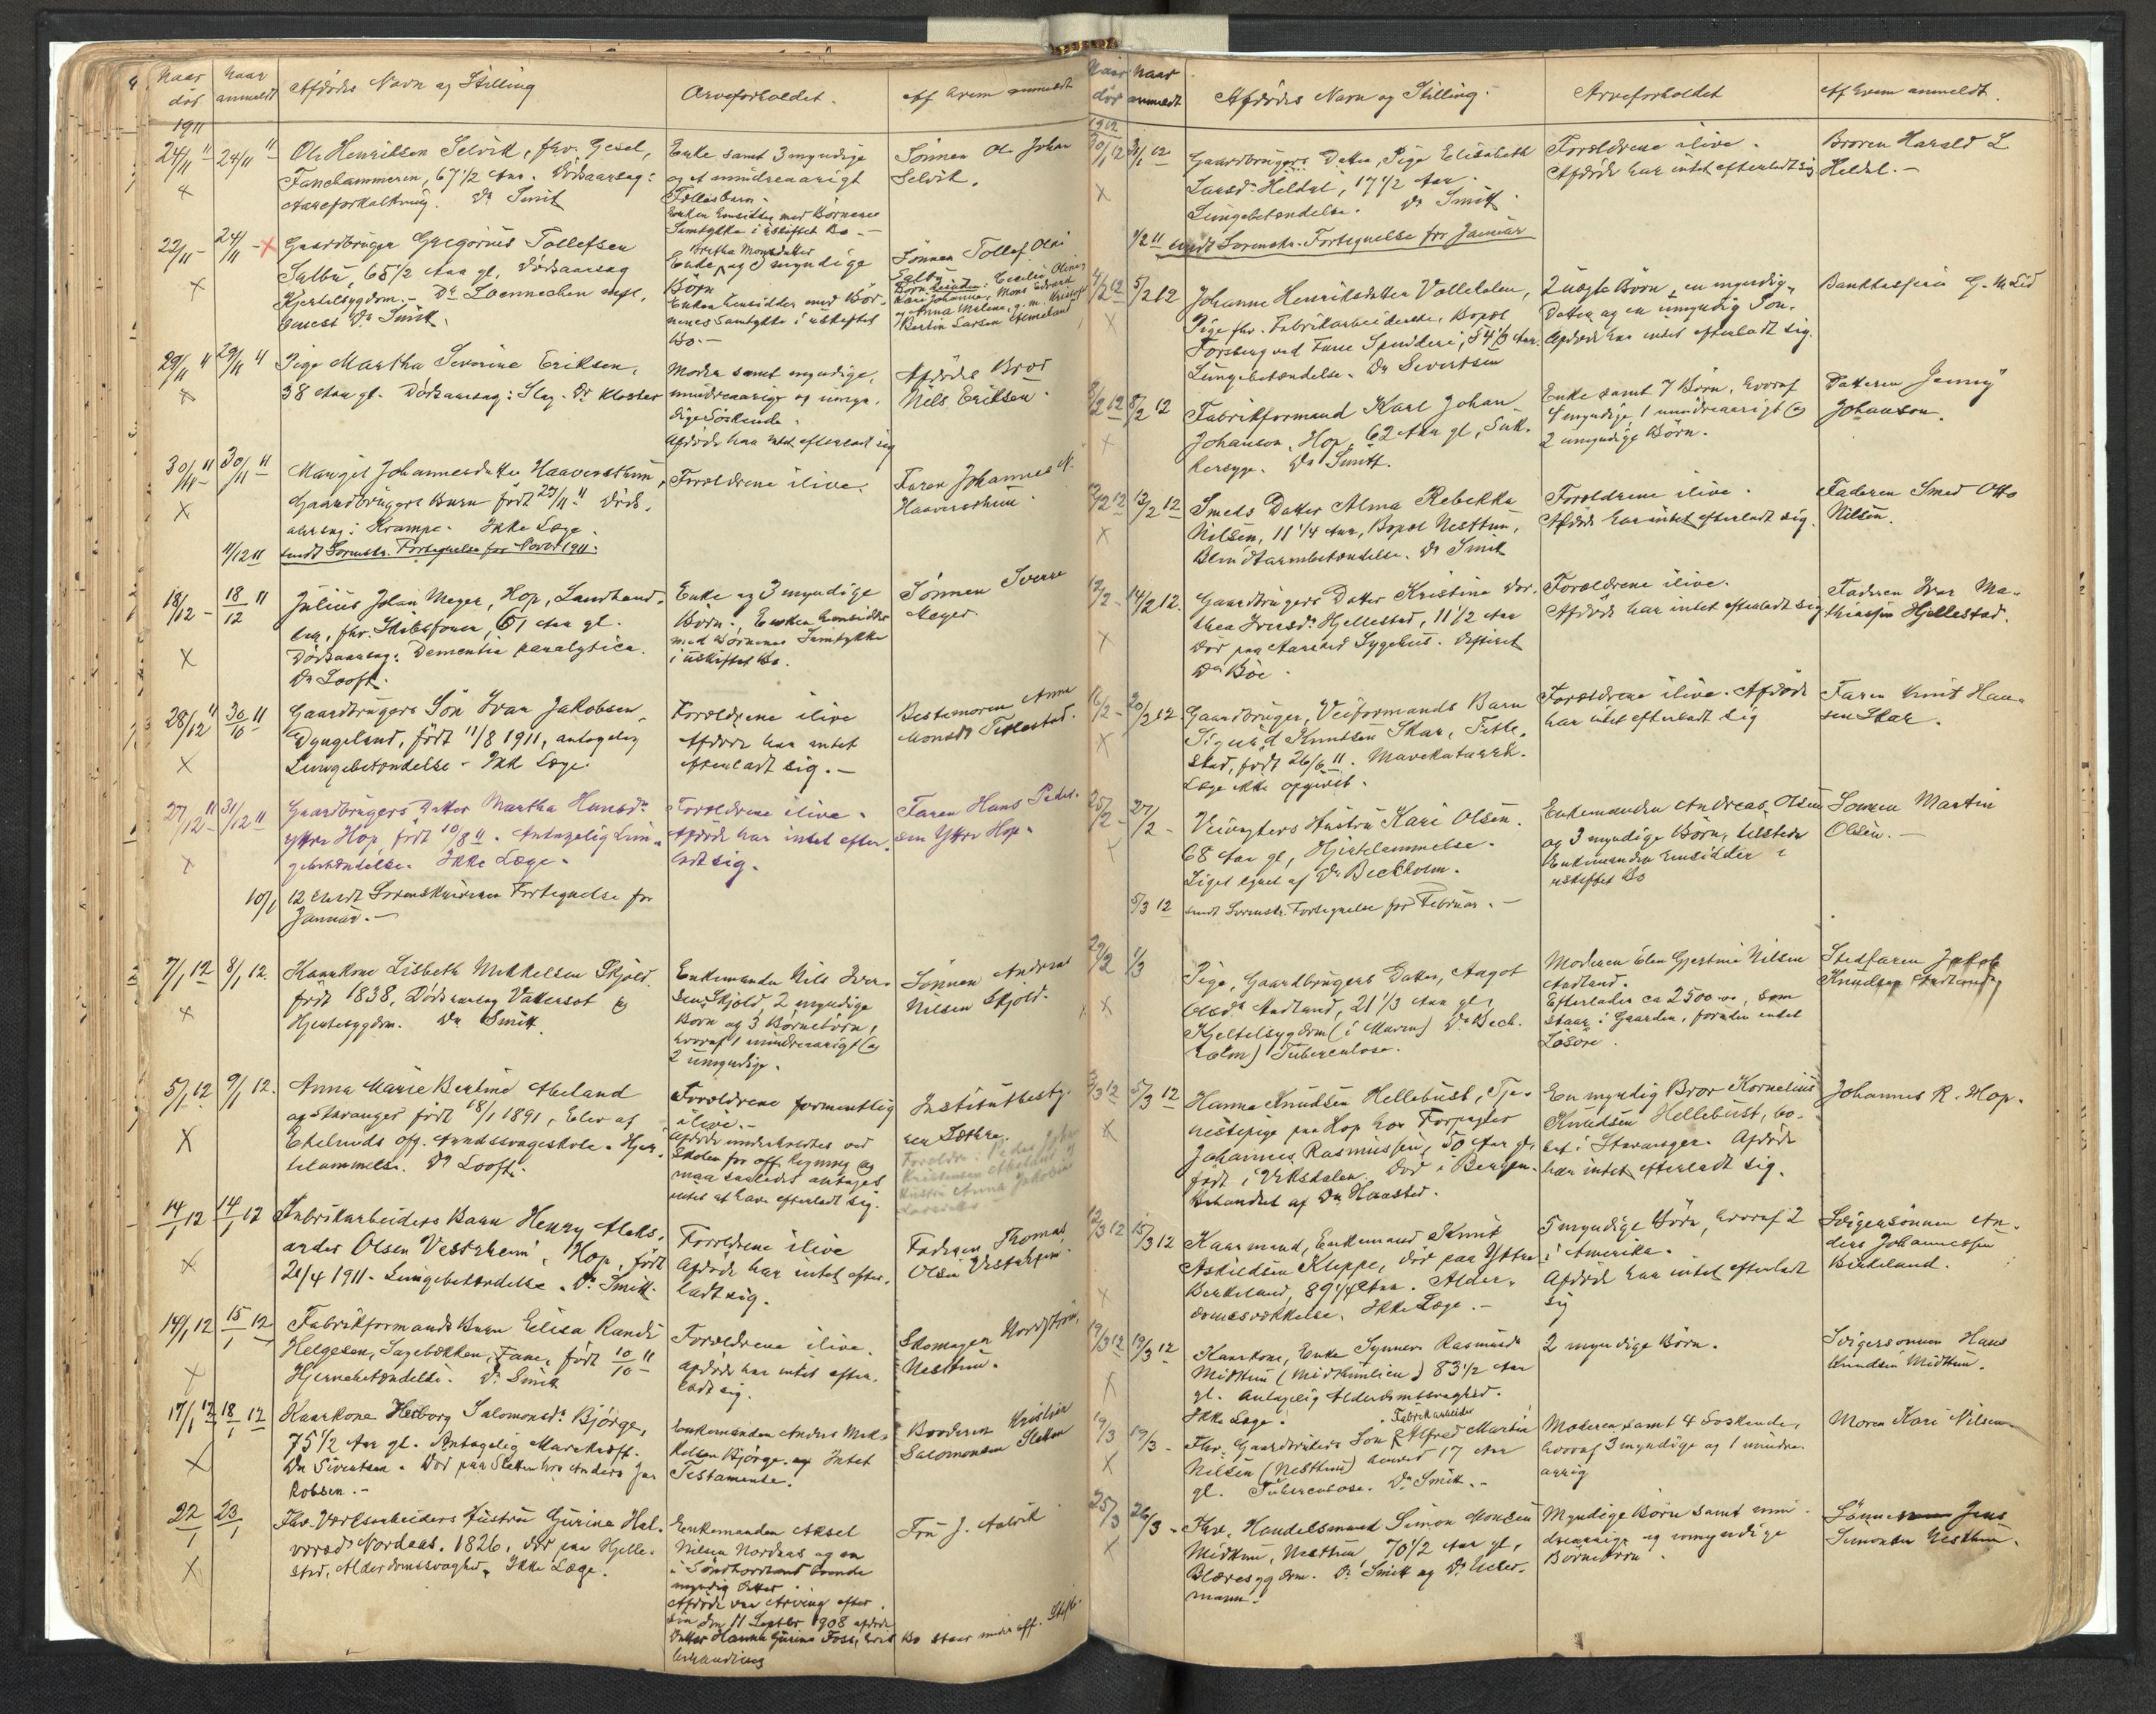 Naar død
Naar anmeldt
Afdødes Navn og Stilling
Arveforholdet.
Af hvem anmeldt
1911
24/11 11
24/11 11
Ole Henriksen Selvik, fhv. Gesel,
Fanehammeren, 67 1/2 Aar. Dødsaarsag:
Aareforkalkning. Dr Smit
Enke samt 3 myndige
og et mindreaarigt
Fællesbarn.
Enken hensidder med Børnenes
Samtykke i uskiftet Bo.-
Sønnen Ole Johan
Selvik.
22/11 -
24/11 -
Gaardbruger Gregorius Tollefsen
Sælbu, 65 1/2 Aar gl. Dødsaarsag
Kjertelsygdom.- Dr Loennechen
senest Dr Smit.
Bertha Monsdatter
Enke og myndige
Børn
Enken hensidder med Bør-
nenes Samtykke i uskiftet
Bo.-
Sønnen Tollef Olai
Sælbu
29/11 11
29/11 11
Pige Martha Severine Eriksen,
38 Aar gl. Dødsaarsag: Slag. Dr Kloster
Moder samt myndige,
mindreaarige og umyn-
dige Søskende.
Afdøde har intet efterladt sig
Afdødes Bror
Nils Eriksen.
30/11 11
30/11 11
Johannesdatter Haavardsthun,
Gaardbrugers Barn født 27/11 11. Døds-
aarsag: Krampe. Ikke Læge.
Forældrene ilive.
Faren Johannes N.
Haavardsthun.
11/12 11
sendt Sorenskr. Fortegnelse for Novbr 1911.
18/12 -
18/12 11
Julius Johan Meyer, Hop, Landhand-
ler, fhv. Skibsfører, 61 Aar gl.
Dødsaarsag: Dementia paralytica.
Dr Looft.
Enke og 3 myndige
Børn. Enken hensidder
med Børnenes Samtykke
i uskiftet Bo.
Sønnen Sverre
Meyer
28/12 11
30/10 11
Gaardbrugers Søn Ivar Jakobsen
Dyngeland, født 11/8 1911, antagelig
Lungebetændelse - Ikke Læge.
Forældrene ilive
Afdøde har intet
efterladt sig.-
Bestemoren Anna
Monsdr Titlestad.
27/12 11
31/12 11
Gaardbrugers Datter Martha Hansdr
Ytre Hop, født 10/8 11. Antagelig Lun-
gebetændelse. Ikke Læge.
Forældrene ilive.
Afdøde har intet efter-
ladt sig.
Faren Hans Peder-
sen Ytre Hop.
10/1
12 sendt Sorenskriveren Fortegnelse for
Januar.-
7/1 12
8/1 12.
Kaarkone Lisbeth Mikkelsen Skjold
født 1838, Dødsaarsag Vattersot og
Hjertesygdom. Dr Smit
Enkemanden Nils Iver-
sen Skjold, 2 myndige
Børn og 3 Børnebørn,
hvoraf 1 mindreaarigt og
2 umyndige.
Sønnen Andreas
Nilsen Skjold.
5/1 12
9/1 12.
Anna Marie Bertine Abeland
af Stavanger født 18/1 1891, Elev af
Ekelunds off. Aandssvageskole. Hjer-
telammelse. Dr Looft.
Forældrene formentlig
ilive.-
Afdøde underholdtes ved
Skolen for off. Regning og
maa saaledes antages
intet at have efterladt sig.
Institutbesty-
rer Sæthre.
14/1 12
14/1 12
Fabrikarbeiders Barn Henry Aleks-
ander Olsen Vestrheim, Hop, født
20/4 1911. Lungebetændelse. Dr Smit.
Forældrene ilive
Afdøde har intet efter-
ladt sig.
Faderen Thomas
Olsen Vestrheim.
14/1 12
15/1 12
Fabrikformands Barn Elisa Randi
Helgesen, Sagebækken, Fane, født 10/10 11
Hjernebetændelse. Dr Smit
Forældrene ilive.
Afdøde har intet efter-
ladt sig.
Skomager Nordstrøm,
Nestthun.
17/1 12
18/1 12
Kaarkone Herborg Salomonsdr Bjørge,
75 1/2 Aar gl. Antagelig Mavekræft.
Dr Sivertsen. Død paa Sletten hos Anders Ja-
kobsen.-
Enkemanden Anders Mik-
kelsen Bjørge. Intet
Testamente.
Broderen Kristian
Salomonsen Sletten
22/1
23/1
Fhv. Værksarbeiders Hustru Gurine Hal-
vorsdr Nordaas. 1826, død paa Hjelle-
stad, Alderdomssvaghed. Ikke Læge.
Enkemanden Aksel
Nilsen Nordaas og en
i Søndhordland boende
myndig Datter.
Afdøde var Arving efter
sin den 11 Septbr 1908 afdøde
Datter Hanna Gurine Foss, hvis Bo staar under off. Skifte-
behandling
Fru J. Aalvik
Naar død
Naar anmeldt
Afdødes Navn og Stilling.
Arveforholdet
Af hvem anmeldt.
1912
30/1 12
31/1 12
Gaardbrugers Datter, Pige Elisabeth
Larsdr Heldal, 17 1/2 Aar.
Lungebetændelse. Dr Smit.
Forældrene ilive.
Afdøde har intet efterladt sig
Broren Harald L
Heldal.-
1/2 11 sendt Sorenskr. Fortegnelse for Januar
4/2 12
5/2 12
Johanne Henriksdatter Vallelalen,
Pige fhv. Fabrikarbeiderske, Bopæl
Forsberg ved Fane Spinderi, 54 1/3 Aar.
Lungebetændelse. Dr Sivertsen
2 uægte Børn, en myndig
Datter og en umyndig Søn.
Afdøde har intet efterladt sig.
Bankkasserer G. M. Lid
8/2 12
8/2 12
Fabrikformand Karl Johan
Johanson, Hop, 62 Aar gl, Suk-
kersyge. Dr Smitt.
Enke samt 7 Børn, hvoraf
4 myndige, 1 mindreaarigt og
2 umyndige Børn.
Datteren Jenny
Johanson.
12/2 12
13/2 12
Smeds Datter Alma Rebekka
Nilsen, 11 1/4 Aar, Bopæl Nestthun,
Blindtarmbetændelse. Dr Smit
Forældrene ilive.
Afdøde har intet efterladt sig.
Faderen Smed Otto
Nilsen.
12/2 -
14/2 12.
Gaardbrugers Datter Kristine Dor-
thea Iversdr Hjellestad, 11 1/2 Aar
død paa Aarstad Sygehus. Difterit
Dr Böe.
Forældrene ilive.
Afdøde har intet efterladt sig
Faderen Ivar Ma-
thiassen Hjellestad.
16/2 -
20/2 12.
Gaardbruger, Veiformands Barn
Sigurd Knutsen Skar, Title-
stad, født 26/6 11. Mavekatarrh.
Læge ikke opgivet.
Forældrene ilive. Afdøde
har intet efterladt sig
Faren Knut Han-
sen Skar.
25/2 -
27/2 -
Veivogters Hustru Kari Olsen.
68 Aar gl, Hjertelammelse.
Liget synet af Dr Beckholm.
Enkemanden Andreas Olsen
og 3 myndige Børn, tilstede
Enkemanden hensidder i
uskiftet Bo
Sønnen Martin
Olsen.-
5/3 12
sendt Sorenskr. Fortegnelse for Februar.-
29/2
1/3
Pige, Gaardbrugers Datter, Aagot
Olsdr Aadland, 21 1/3 Aar gl,
Kjertelsygdom (i Maven) Dr Beck-
holm) Tuberculose.
Moderen Elen Gjertine Nilsen
Aadland.
Efterlader ca 2500 00, som
staar i Gaarden, foruden endel
Løsøre.
Stedfaren Jakob
Knudsen Aadland
3/3 12
5/3 12
Hanna Knudsen Hellebust, Tje-
nestepige paa Hop hos Forpagter
Johannes Rasmussen, 50 Aar gl,
født i Viksdalen, død i Bergen.
Behandlet af Dr Haasted.
En myndig Bror Kornelius
Knudsen Hellebust, bo-
sat i Stavanger. Afdøde
har intet efterladt sig.
Johannes R. Hop.
12/3 12
15/3 12
Kaarmand, Enkemand Knut
Askildsen Kleppe, død paa Ytre
Birkeland, 89 1/4 Aar. Alder-
domssvækkelse, Ikke Læge.-
5 myndige Børn, hvoraf 2
i Amerika.
Afdøde har intet efterladt
sig
Svigersønnen An-
ders Johannessen
Birkeland.
19/3 12
19/3 12
Kaarkone, Enke Synneve Rasmusdr
Midtun (Midtunlien) 83 1/2 Aar
gl. Antagelig Alderdomssvaghed.
Ikke Læge.
2 myndige Børn.
Svigersønnen Hans
Knudsen Midttun.
19/3
19/3 -
Fabrikarbeider
Fhv. Gaardbrukers Søn Alfred Martin
Nilsen (Nestthun) 17 Aar
gl. Tuberculose. Dr Smit.-
Moderen samt 4 Søskende,
hvoraf 3 myndige og 1 mindre-
aarig
Moren Kari Nilsen
25/3
26/3 -
Fhv. Handelsmand Simon Monsen
Midttun, Nestthun, 70 1/2 Aar gl,
Blæresygdom. Dr Smitt og Dr Ucher-
mann.
Myndige Børn samt min-
dreaarige og umyndige
Børnebørn.
Sønnen Jens
Simonsen Nestthun.